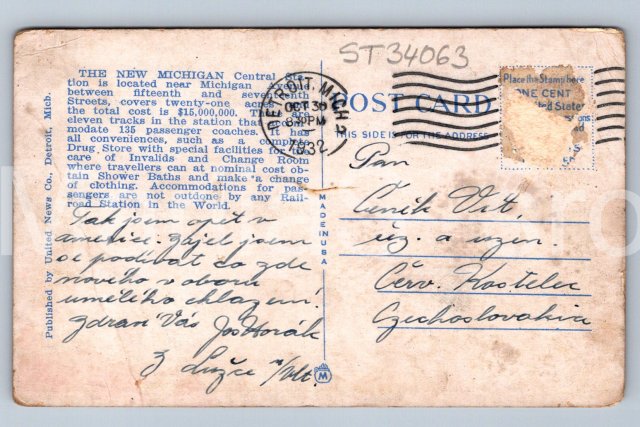 ST34063
THE NEW MICHIGAN Central Sta-
tion is located near Michigan Avenue
between fifteenth and seventeenth
Streets, covers twenty-one acres
the total cost is $15,000,000. are
eleven tracks in the station that
modate 135 passenger coaches. It has
all conveniences, such as a complete
Drug Store with special facilities for
care of Invalids and Change Room
where travellers can at nominal cost ob-
tain Shower Baths and make a change
of clothing. Accommodations for pas-
sengers are not outdone by any Rail-
road Station in the World.
Published by United News Co., Detroit, Mich.
Tak jsem opět v
americe. Zajel jsem
se podívat co zde
nového v oboru
umělého chlazení.
Zdraví Vás Jos Horák
z Lužce n/Vlt.
DETROIT, MICH.
OCT 30
8 PM
1932
POST CARD
THIS SIDE IS FOR THE ADDRESS
Place the Stamp here
ONE CENT
United States
MADE IN USA
M
Pan
Čeněk Vít,
a uzen.
Červ. Kostelec
Czechoslovakia